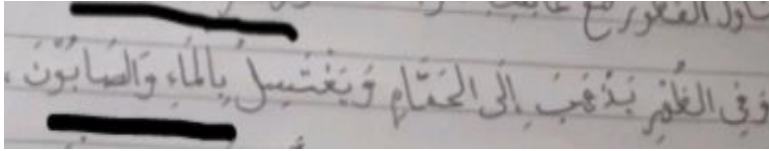 ناول الفطور مع
وَفِي الظُّهْرِ يَذْهَبُ إِلَى الحَمَّامِ وَيَغْتَسِلُ بِالمَاءِ وَالصَابُوْنَ.